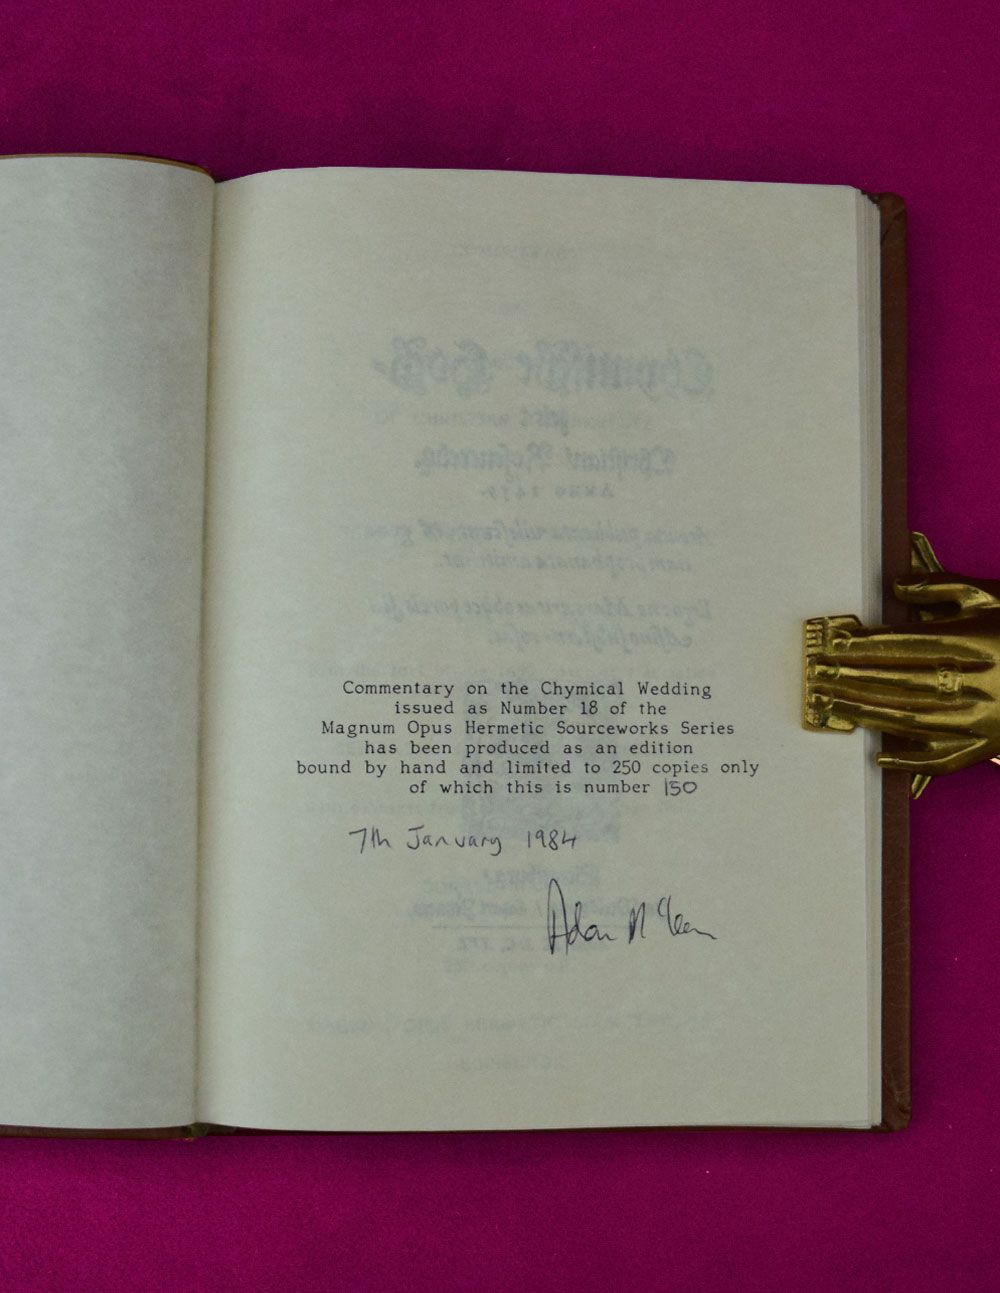 Commentary on the Chymical Wedding
issued as Number 18 of the
Magnum Opus Hermetic Sourceworks Series
has been produced as an edition
bound by hand and limited to 250 copies only
of which this is number 150
7th January 1984
Adam McLean